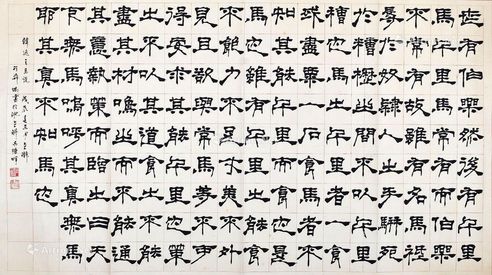 世有伯樂然後有千里
馬千里馬常有而伯樂
不常有故雖有名馬祗
辱於奴隸人之手駢死
於槽櫪之間不以千里
稱也馬之千里者一食
或盡粟一石食馬者不
知其能千里而食也是
馬也雖有千里之能食
不飽力不足才美不外
見且欲與常馬等不可
得安求其能千里也策
之不以其道食之不能
盡其材鳴之而不能通
其意執策而臨之曰天
下無馬嗚呼其真無馬
耶其真不知馬也